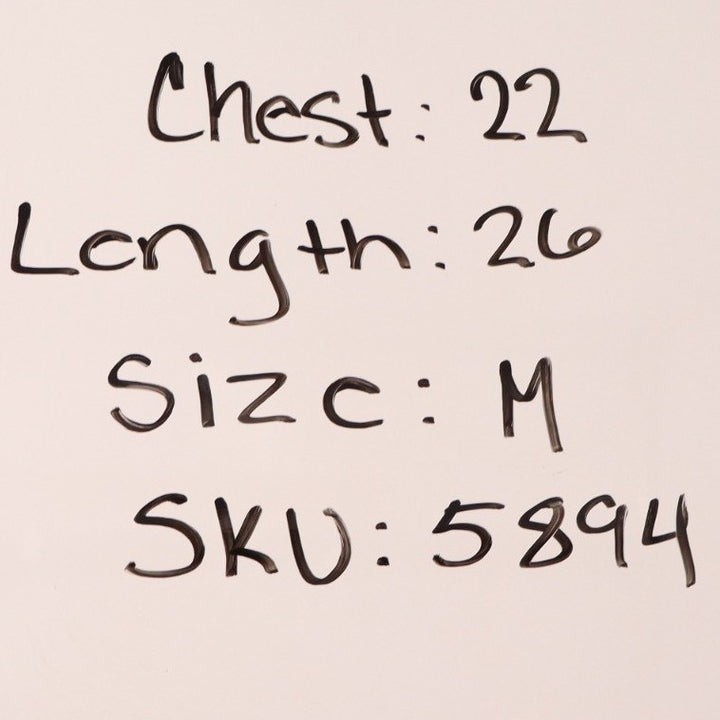 Chest: 22
Length: 26
Size: M
SKU: 5894